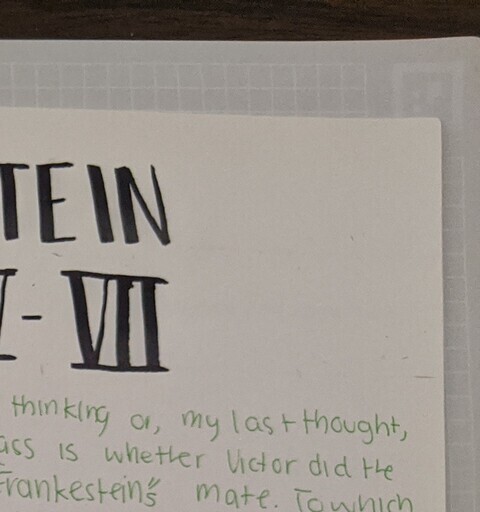 TEIN
- VII
thinking or, my last thought,
ass is whether Victor did the
Frankestein's mate. To which